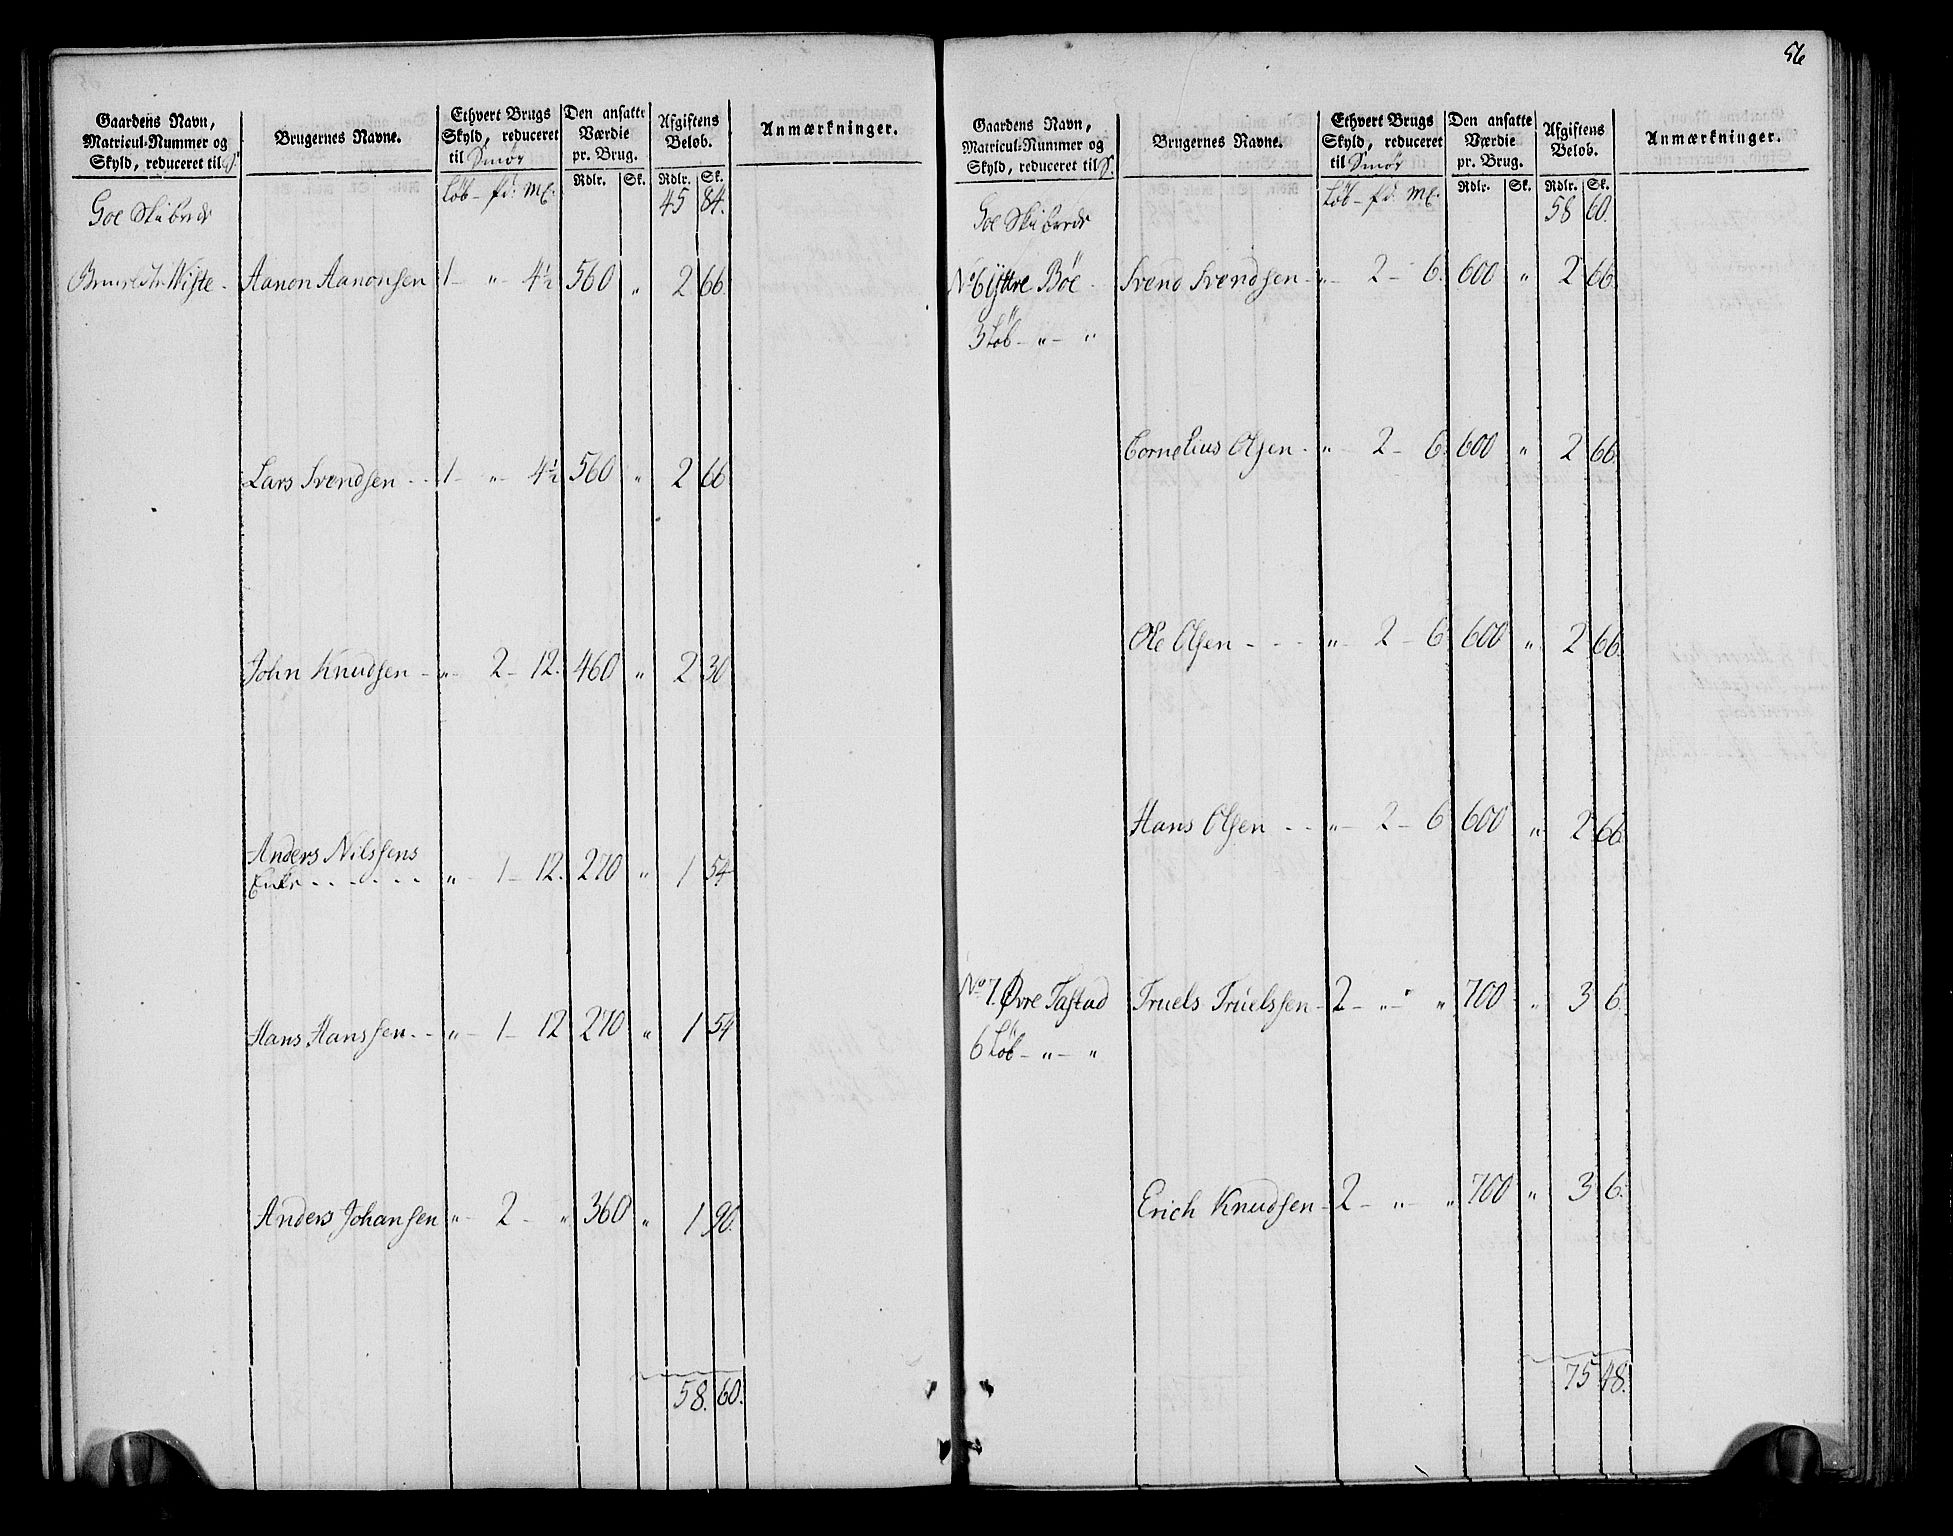 56
Gaardens Navn, Matricul-Nummer og Skyld, reduceret til S.
Brugernes Navne.
Ethvert Brugs Skyld, reduceret til Smør
Den ansatte Værdie pr. Brug.
Afgiftens Beløb.
Anmærkninger.
Løb – pd: mk:
Rdlr. Sk. Rdlr. Sk.
Goe Skibrede 45 84.
Aanon Aanonsen 1 – " – 4½ 560 " 2 66
Lars Svendsen - - 1 – " – 4½ 560 " 2 66
John Knudsen - " – 2 – 12. 460 " 2 30
Anders Nilssens
Enke - - - - - " – 1 – 12. 270 " 1 54
Hans Hanssen - - " – 1 – 12 270 " 1 54
Anders Johansen " – 2 – " 360 " 1 90.
58. 60.
Gaardens Navn, Matricul-Nummer og Skyld, reduceret til S.
Brugernes Navne.
Ethvert Brugs Skyld, reduceret til Smør
Den ansatte Værdie pr. Brug.
Afgiftens Beløb.
Anmærkninger.
Løb – pd: mk:
Rdlr. Sk. Rdlr. Sk.
Goe Skibrede 58 60.
No 6 Ystre Bøe - Svend Svendsen - " – 2 – 6. 600 " 2 66.
3 Løb – " – "
Cornelius Olsen - " – 2 – 6. 600 " 2 66.
Ole Olsen - - - " – 2 – 6 600 " 2 66.
Hans Olsen - - " – 2 – 6 600 " 2 66.
No 7. Øvre Tastad Truels Truelssen - 2 – " – " 700 " 3 6.
6 Løb – " – "
Erich Knudsen - 2 – " – " 700 " 3 6.
75 48.